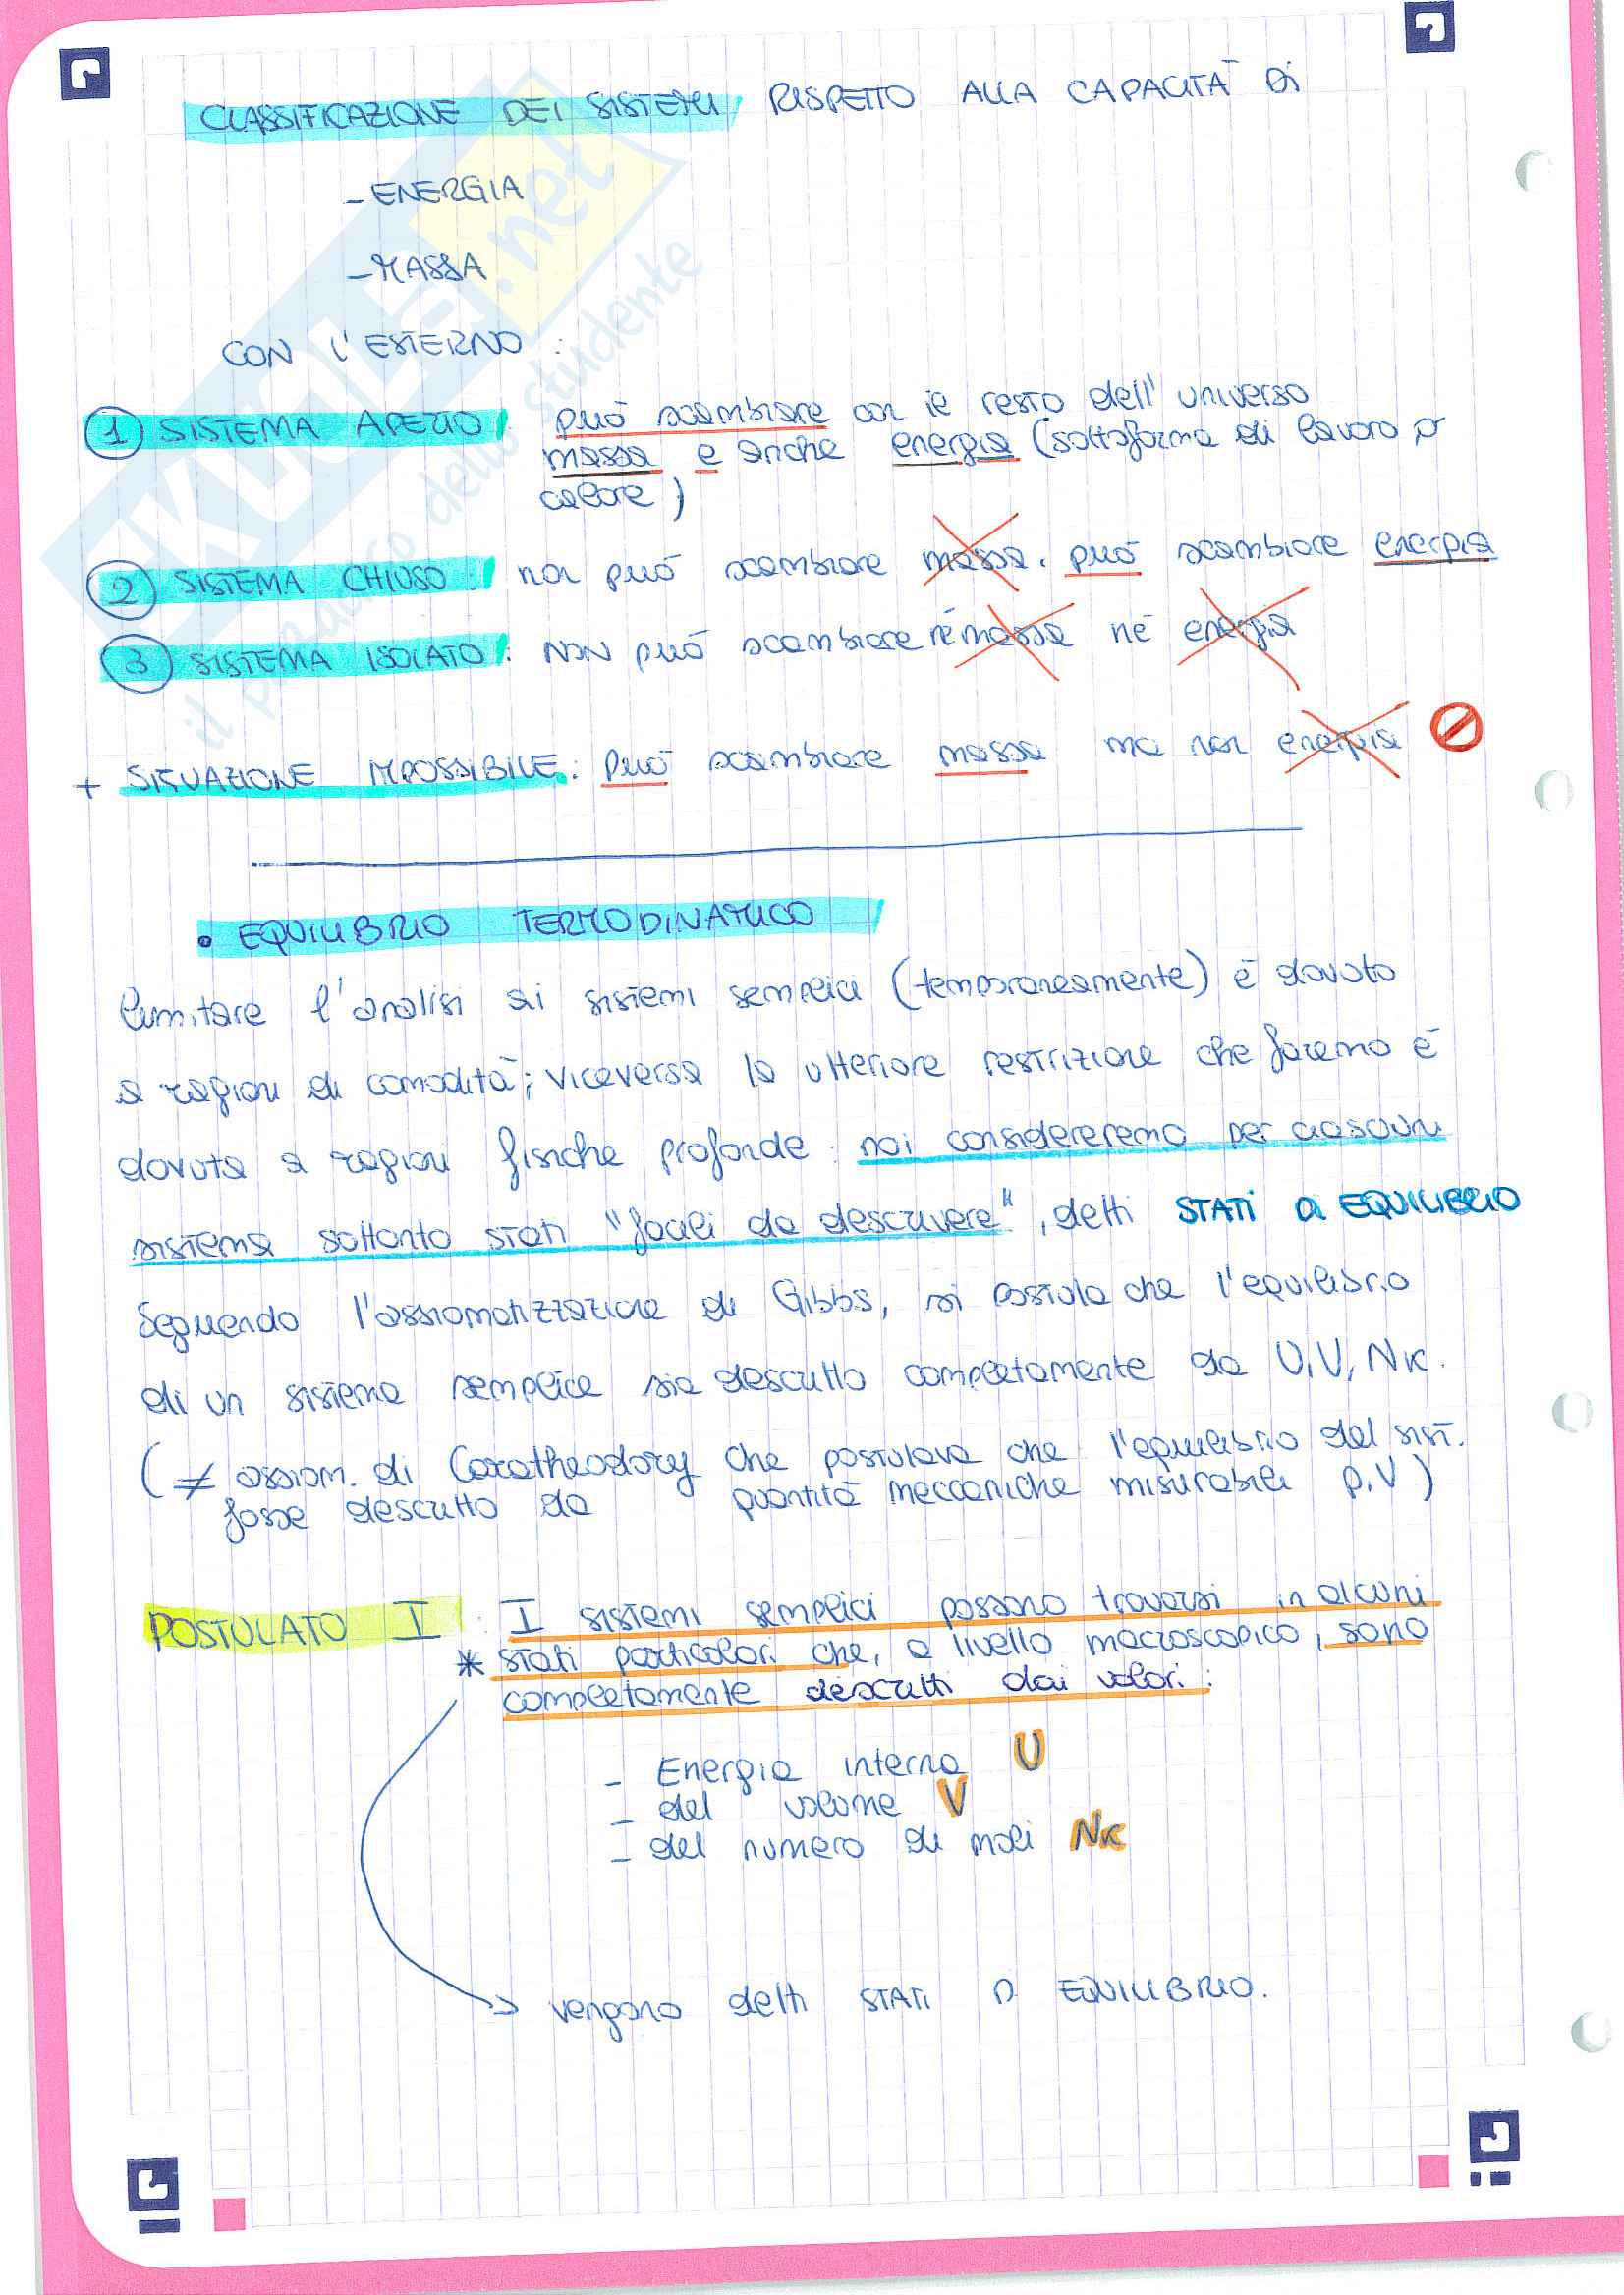 CLASSIFICAZIONE DEI SISTEMI RISPETTO ALLA CAPACITÀ DI
- ENERGIA
- MASSA
CON L'ESTERNO :
① SISTEMA APERTO : può scambiare con il resto dell'universo
massa e anche energia (sottoforma di lavoro o
calore)
② SISTEMA CHIUSO : non può scambiare massa. può scambiare energia
③ SISTEMA ISOLATO : NON può scambiare né massa né energia
+ SITUAZIONE IMPOSSIBILE : può scambiare massa ma non energia
• EQUILIBRIO TERMODINAMICO
Limitare l'analisi ai sistemi semplici (temporaneamente) è dovuto
a ragioni di comodità; viceversa la ulteriore restrizione che faremo è
dovuta a ragioni fisiche profonde : noi considereremo per ciascun
sistema soltanto stati "facili da descrivere", detti STATI DI EQUILIBRIO
Seguendo l'assiomatizzazione di Gibbs, si postula che l'equilibrio
di un sistema semplice sia descritto completamente da U, V, Nk.
(≠ assiom. di Caratheodory che postulava che l'equilibrio del sist.
fosse descritto da quantità meccaniche misurabili p, V)
POSTULATO I : I sistemi semplici possono trovarsi in alcuni
* stati particolari che, a livello macroscopico, sono
completamente descritti dai valori :
- Energia interna U
- del volume V
- del numero di moli Nk
→ vengono detti STATI DI EQUILIBRIO.
SKUOLA.net
il paradiso dello studente